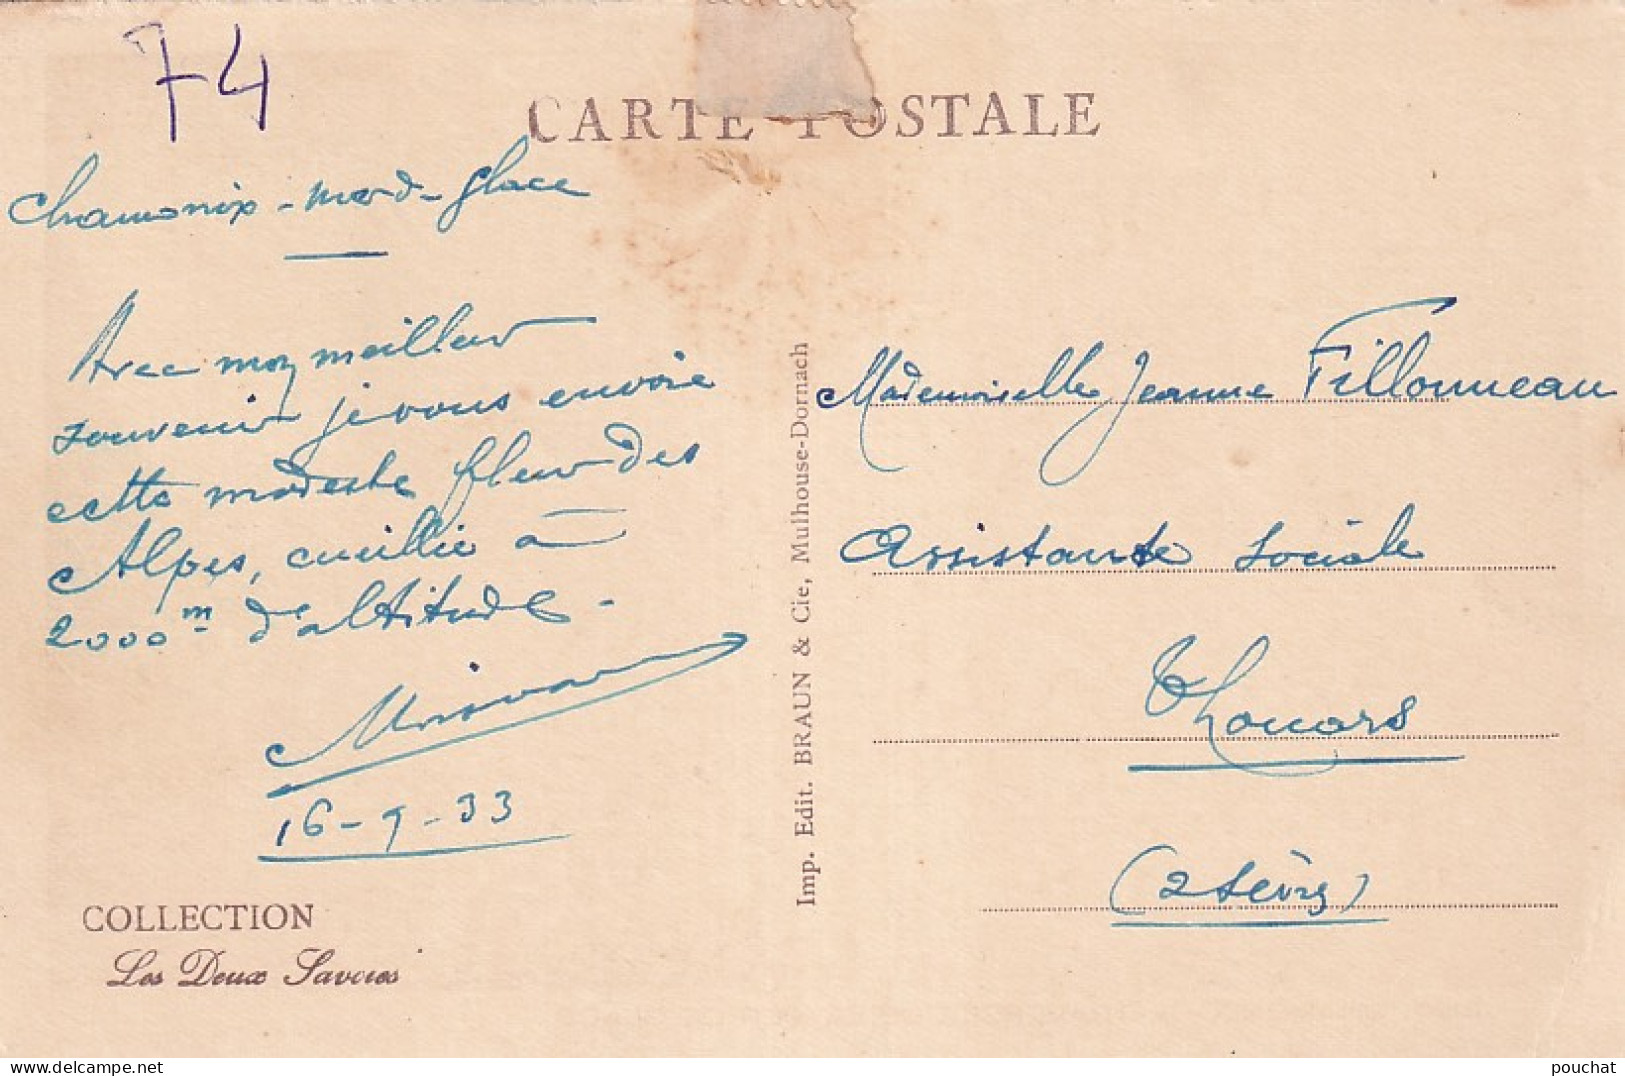 74
CARTE POSTALE
Chamonix - mer d - glace
Avec mon meilleur
souvenir je vous envoie
cette modeste fleur des
Alpes, cueillie à
2000 m d'altitude -
16-9-33
COLLECTION
Les Deux Savoies
Imp. Edit. BRAUN & Cie, Mulhouse-Dornach
Mademoiselle Jeanne Fillonneau
Assistante Sociale
Thouars
(2 Sèvres)
pouchat